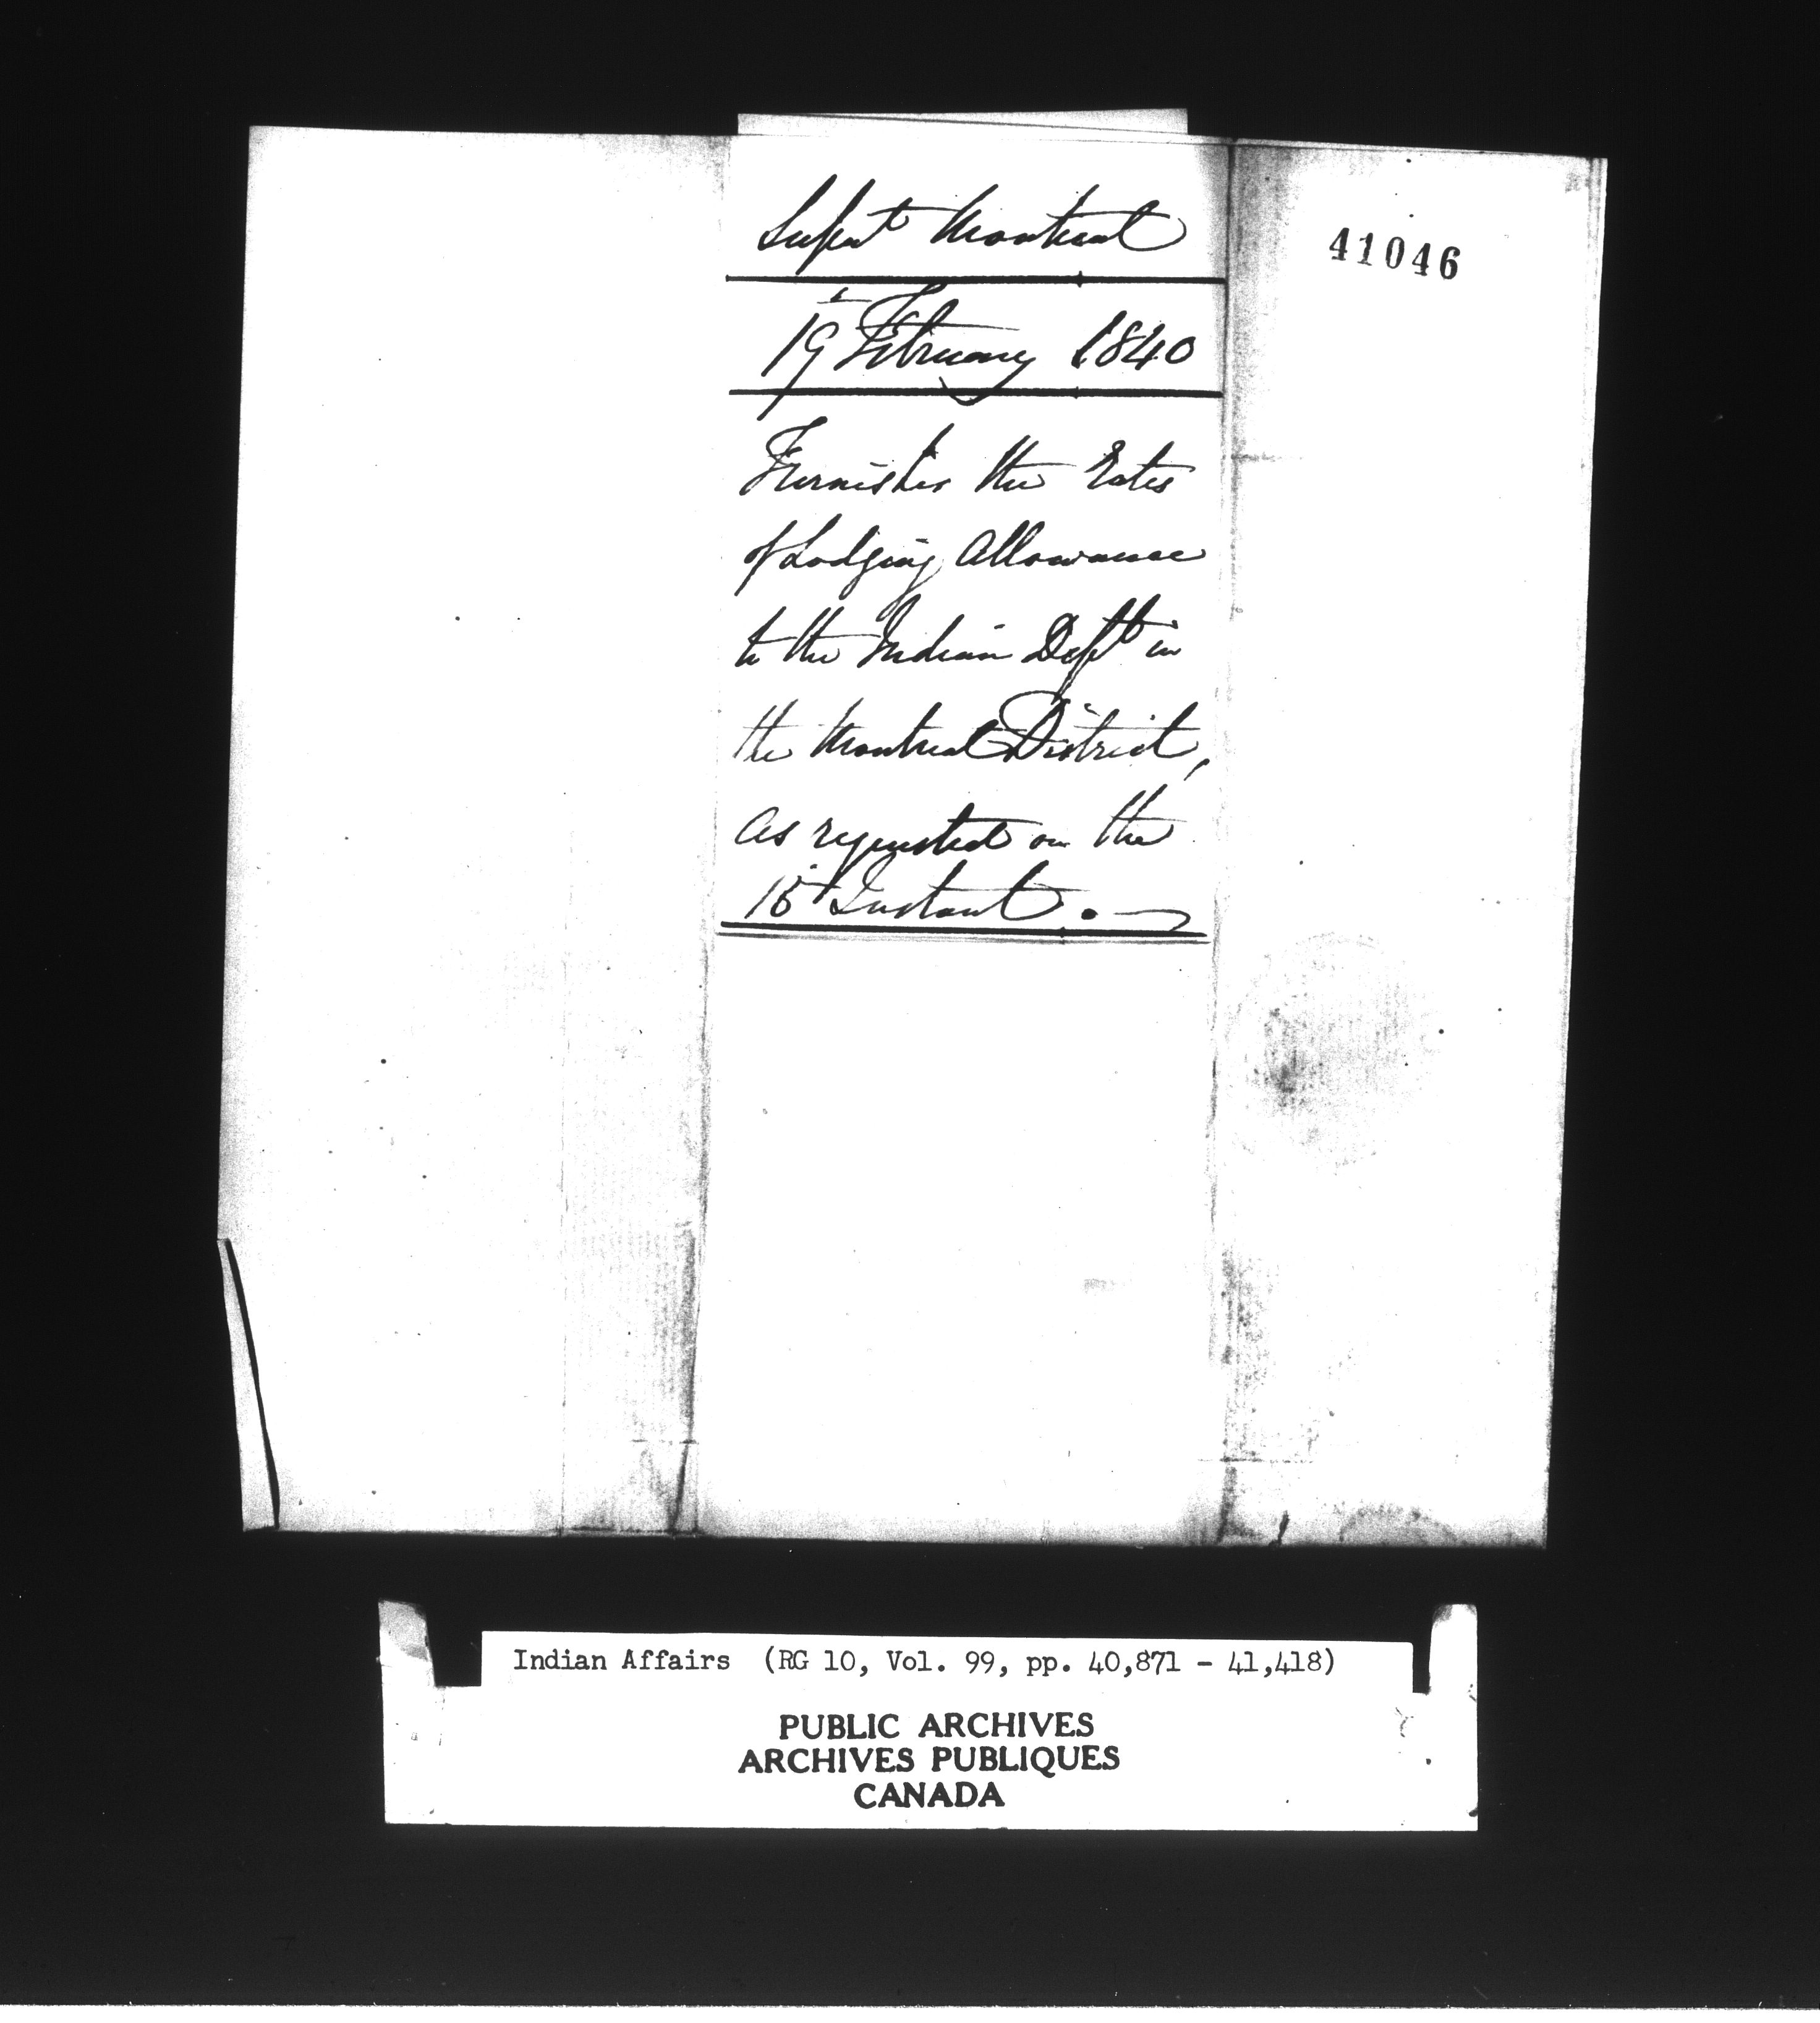 Supt Montreal
41046
19th February 1840
Furnishes the Rates
of Lodging Allowance
to the Indian Dept in
the Montreal District,
as requested on the
15th Instant.
Indian Affairs (RG 10, Vol. 99, pp. 40,871 - 41,418)
PUBLIC ARCHIVES
ARCHIVES PUBLIQUES
CANADA